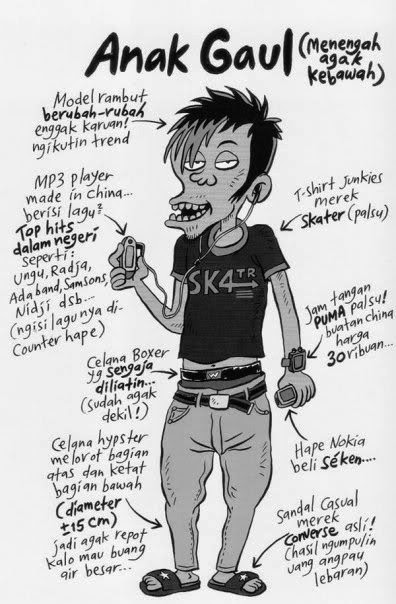 Anak Gaul (Menengah
agak
kebawah)
Model rambut
berubah-rubah
enggak karuan!
ngikutin trend
MP3 player
made in China...
berisi lagu²
Top hits
dalam negeri
seperti:
Ungu, Radja,
Ada band, Samsons,
Nidji dsb....
(ngisi lagunya di-
Counter hape)
T-shirt Junkies
merek
Skater (palsu)
SK4TR
Jam tangan
PUMA palsu!
buatan china
harga
30 ribuan...
Celana Boxer
yg sengaja
diliatin...
(sudah agak
dekil!)
Celana hypster
melorot bagian
atas dan ketat
bagian bawah
(diameter
±15 cm)
jadi agak repot
kalo mau buang
air besar...
Hape Nokia
beli séken....
Sandal Casual
merek
Converse asli!
(hasil ngumpulin
uang angpau
lebaran)